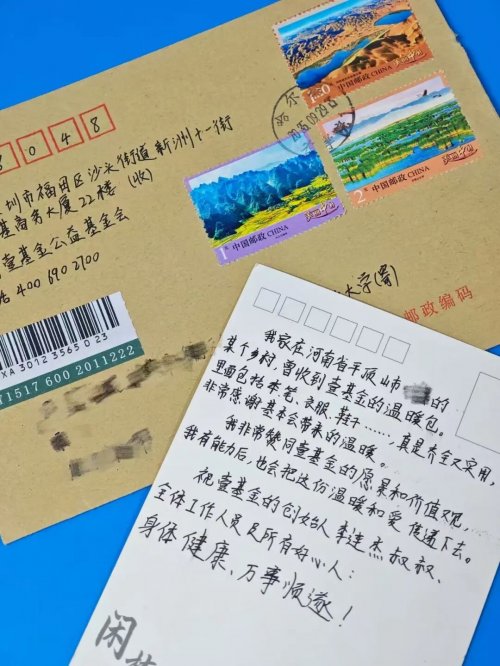 8048
圳市福田区沙头街道新洲十一街
基商务大厦22楼（收）
壹基金公益基金会
400 690 2700
XA 3012 3565 0 23
1517 600 2011222
1.50 中国邮政 CHINA
2元 中国邮政 CHINA
1元 中国邮政 CHINA
大学(寄)
邮政编码
我家在河南省平顶山市 的
某个乡村，曾收到壹基金的温暖包。
里面包括本笔、衣服、鞋子……，真是齐全又实用，
非常感谢基金会带来的温暖。
我非常赞同壹基金的愿景和价值观…
我有能力后，也会把这份温暖和爱传递下去。
祝壹基金的创始人李连杰叔叔、
全体工作人员及所有好心人：
身体健康、万事顺遂！
闲